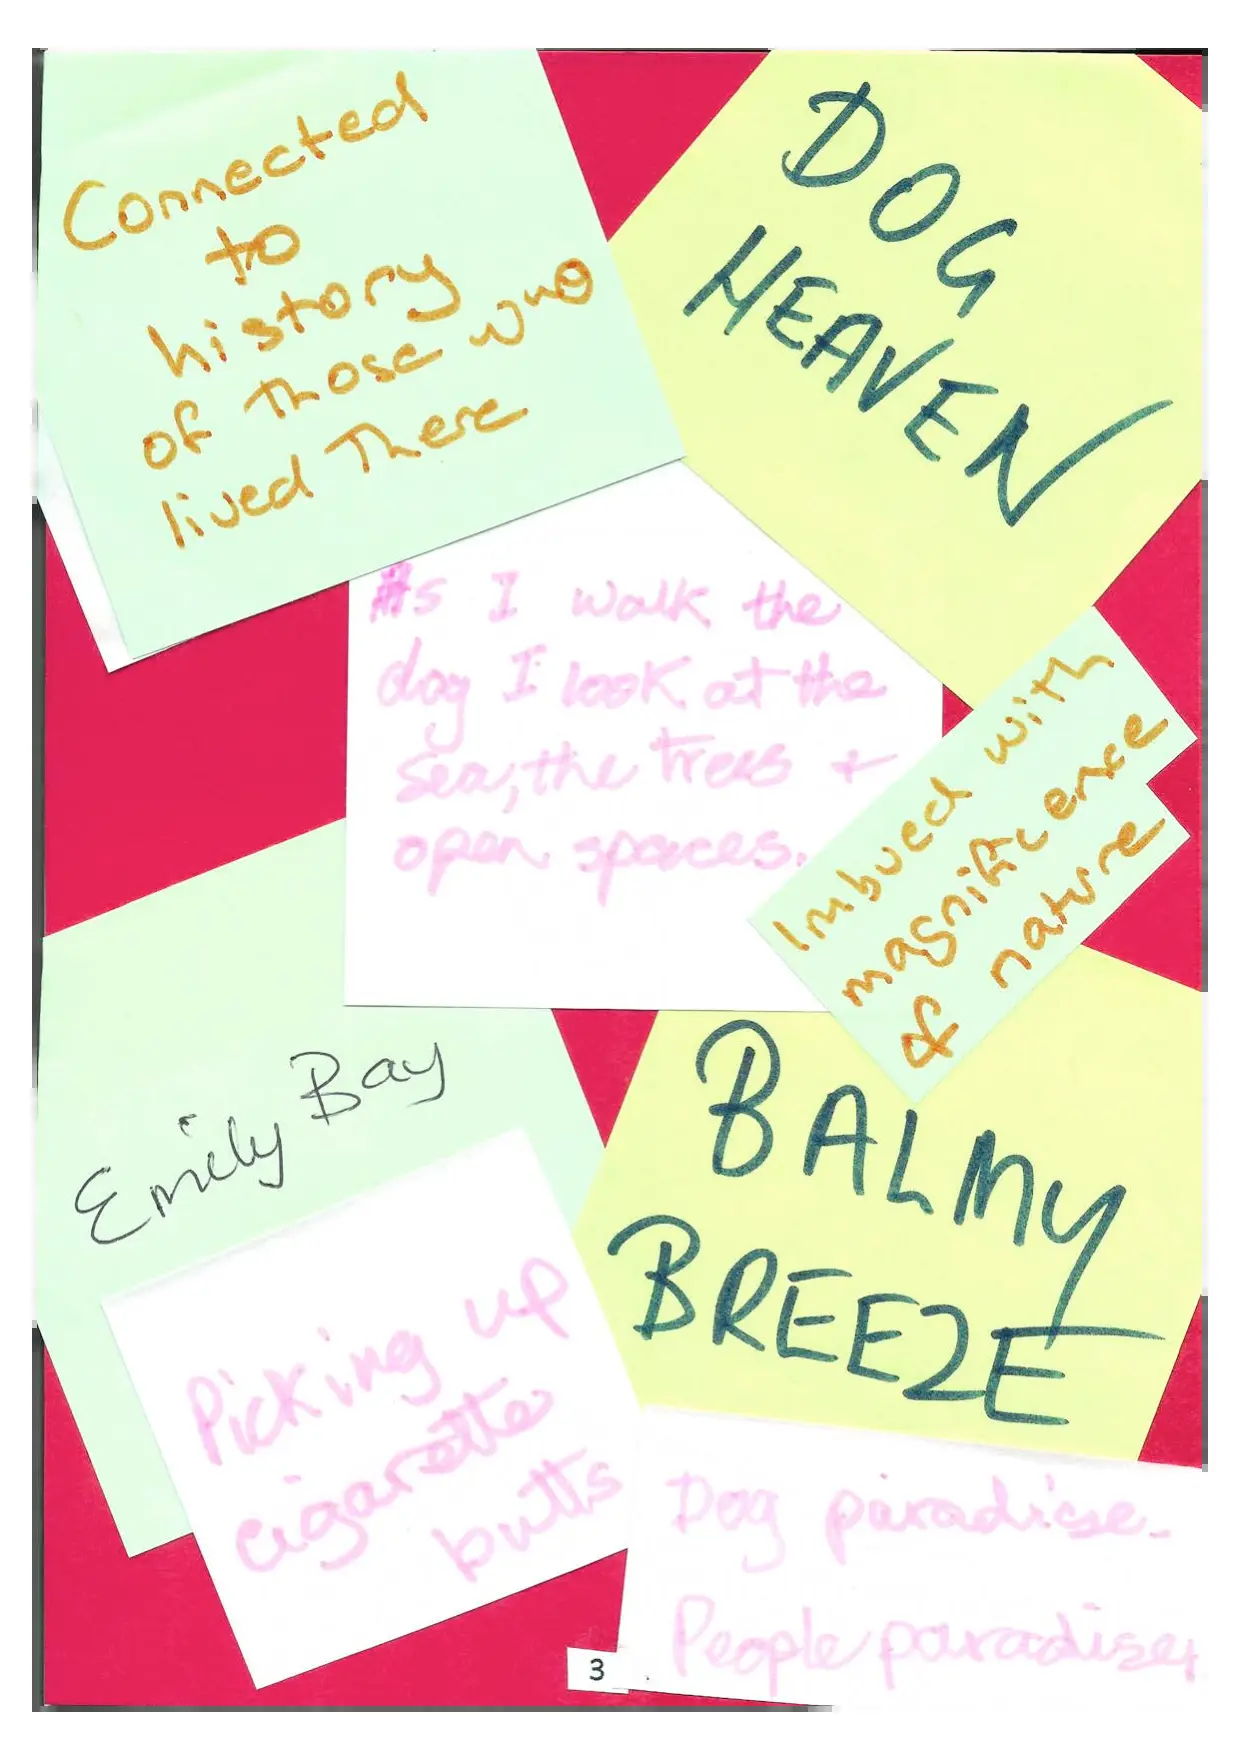 Connected
to
history
of those who
lived There
DOG
HEAVEN
As I walk the
dog I look at the
sea, the trees +
open spaces.
Imbued with
magnificence
& nature
Emily Bay
BALMY
BREEZE
Picking up
cigarette
butts
Dog paradise.
People paradise,
3